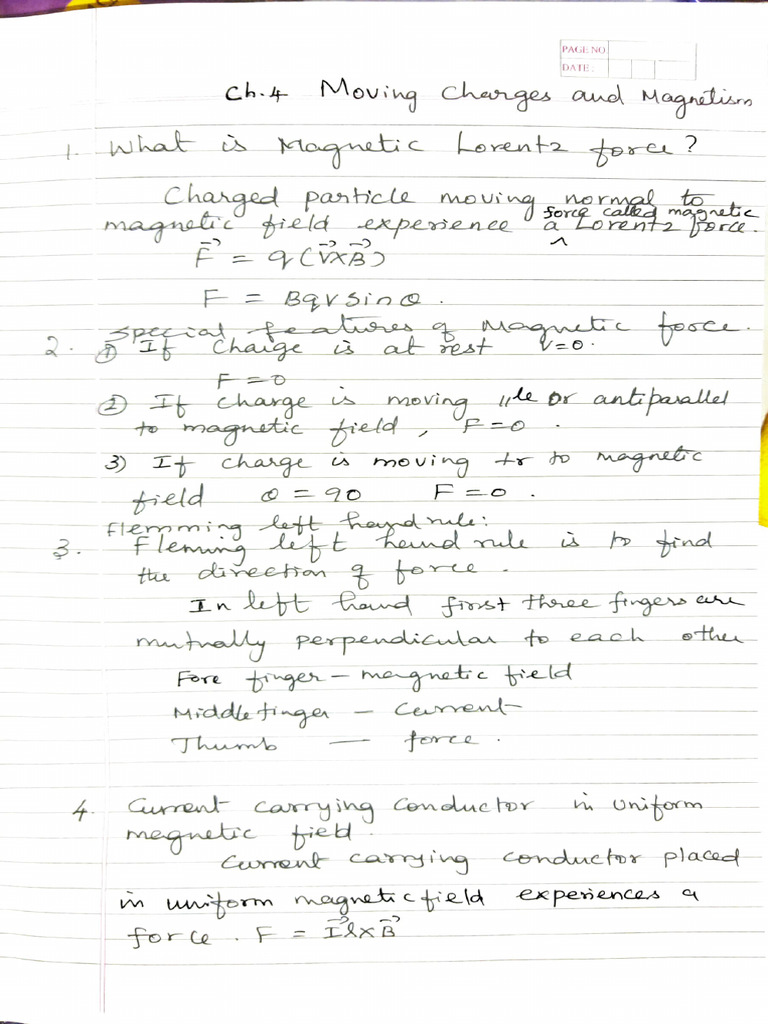 PAGE NO
DATE:
Ch.4 Moving Charges and Magnetism
1. What is Magnetic Lorentz force?
Charged particle moving normal to
force called magnetic
magnetic field experience a ^ Lorentz force.
F⃗ = q(V⃗×B⃗)
F = BqVsinθ.
Special features of Magnetic force.
2. ① If Charge is at rest V=0.
F=0
② If charge is moving ||le or antiparallel
to magnetic field, F=0.
3) If charge is moving +r to magnetic
field θ = 90 F=0.
Flemming left hand rule:
3. Fleming left hand rule is to find
the direction of force.
In left hand first three fingers are
mutually perpendicular to each other
Fore finger – magnetic field
Middle finger – Current
Thumb — force.
4. Current carrying conductor in uniform
magnetic field.
Current carrying conductor placed
in uniform magnetic field experiences a
force. F = I⃗l×B⃗